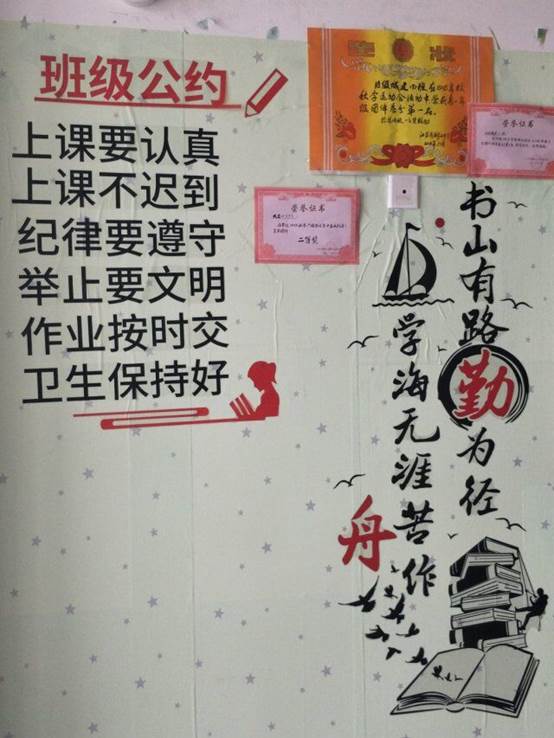 班级公约
上课要认真
上课不迟到
纪律要遵守
举止要文明
作业按时交
卫生保持好
奖状
荣誉证书
荣誉证书
二等奖
书山有路勤为径
学海无涯苦作舟